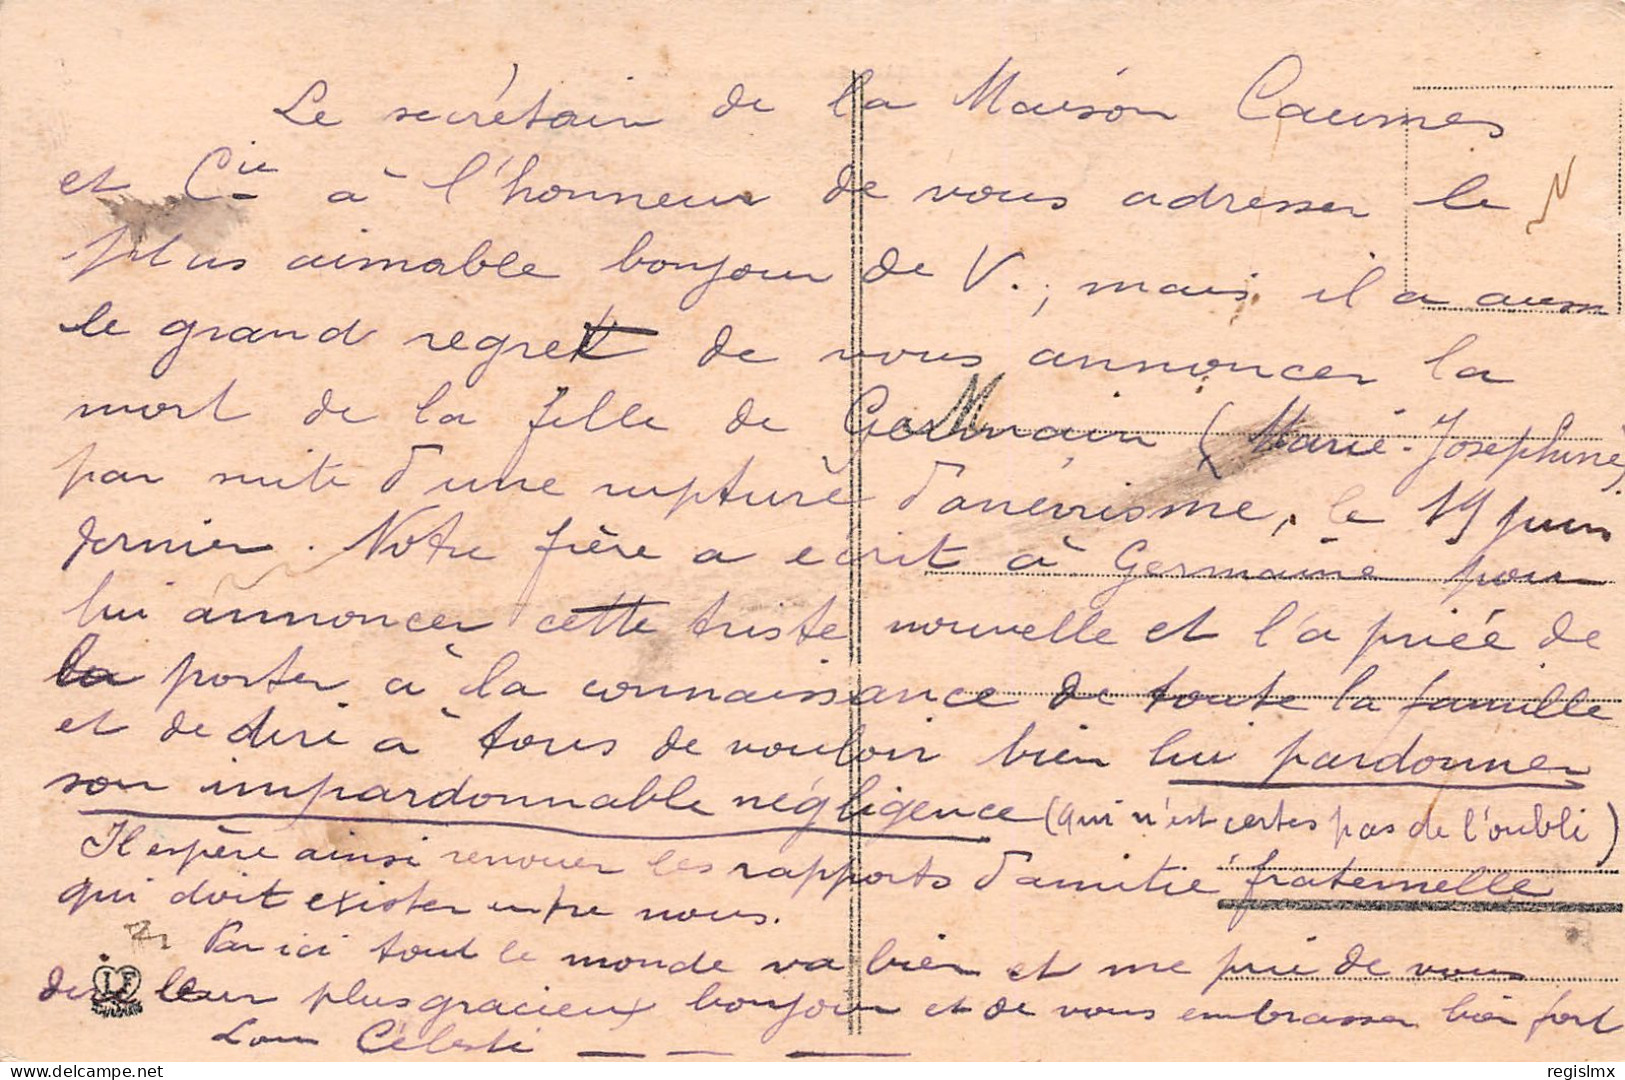 Le secrétair de la Maison Caumes
et Cie à l'honneur de vous adresser le
plus aimable bonjour de V., mais il a aussi
le grand regret de vous annoncer la
mort de la fille de Germain (Marie-Josephine)
par suite d'une rupture d'anévrisme, le 19 juin
dernier. Notre frère a écrit à Germaine pour
lui annoncer cette triste nouvelle et l'a priée de
la porter à la connaissance de toute la famille
et de dire à tous de vouloir bien lui pardonner
son impardonnable négligence (qui n'est certes pas de l'oubli)
Il espère ainsi renouer les rapports d'amitié fraternelle
qui doit exister entre nous.
Par ici tout le monde va bien et me prie de vous
dire leur plus gracieux bonjour et de vous embrasser bien fort
Céleste
LF
delcampe.net
regislmx